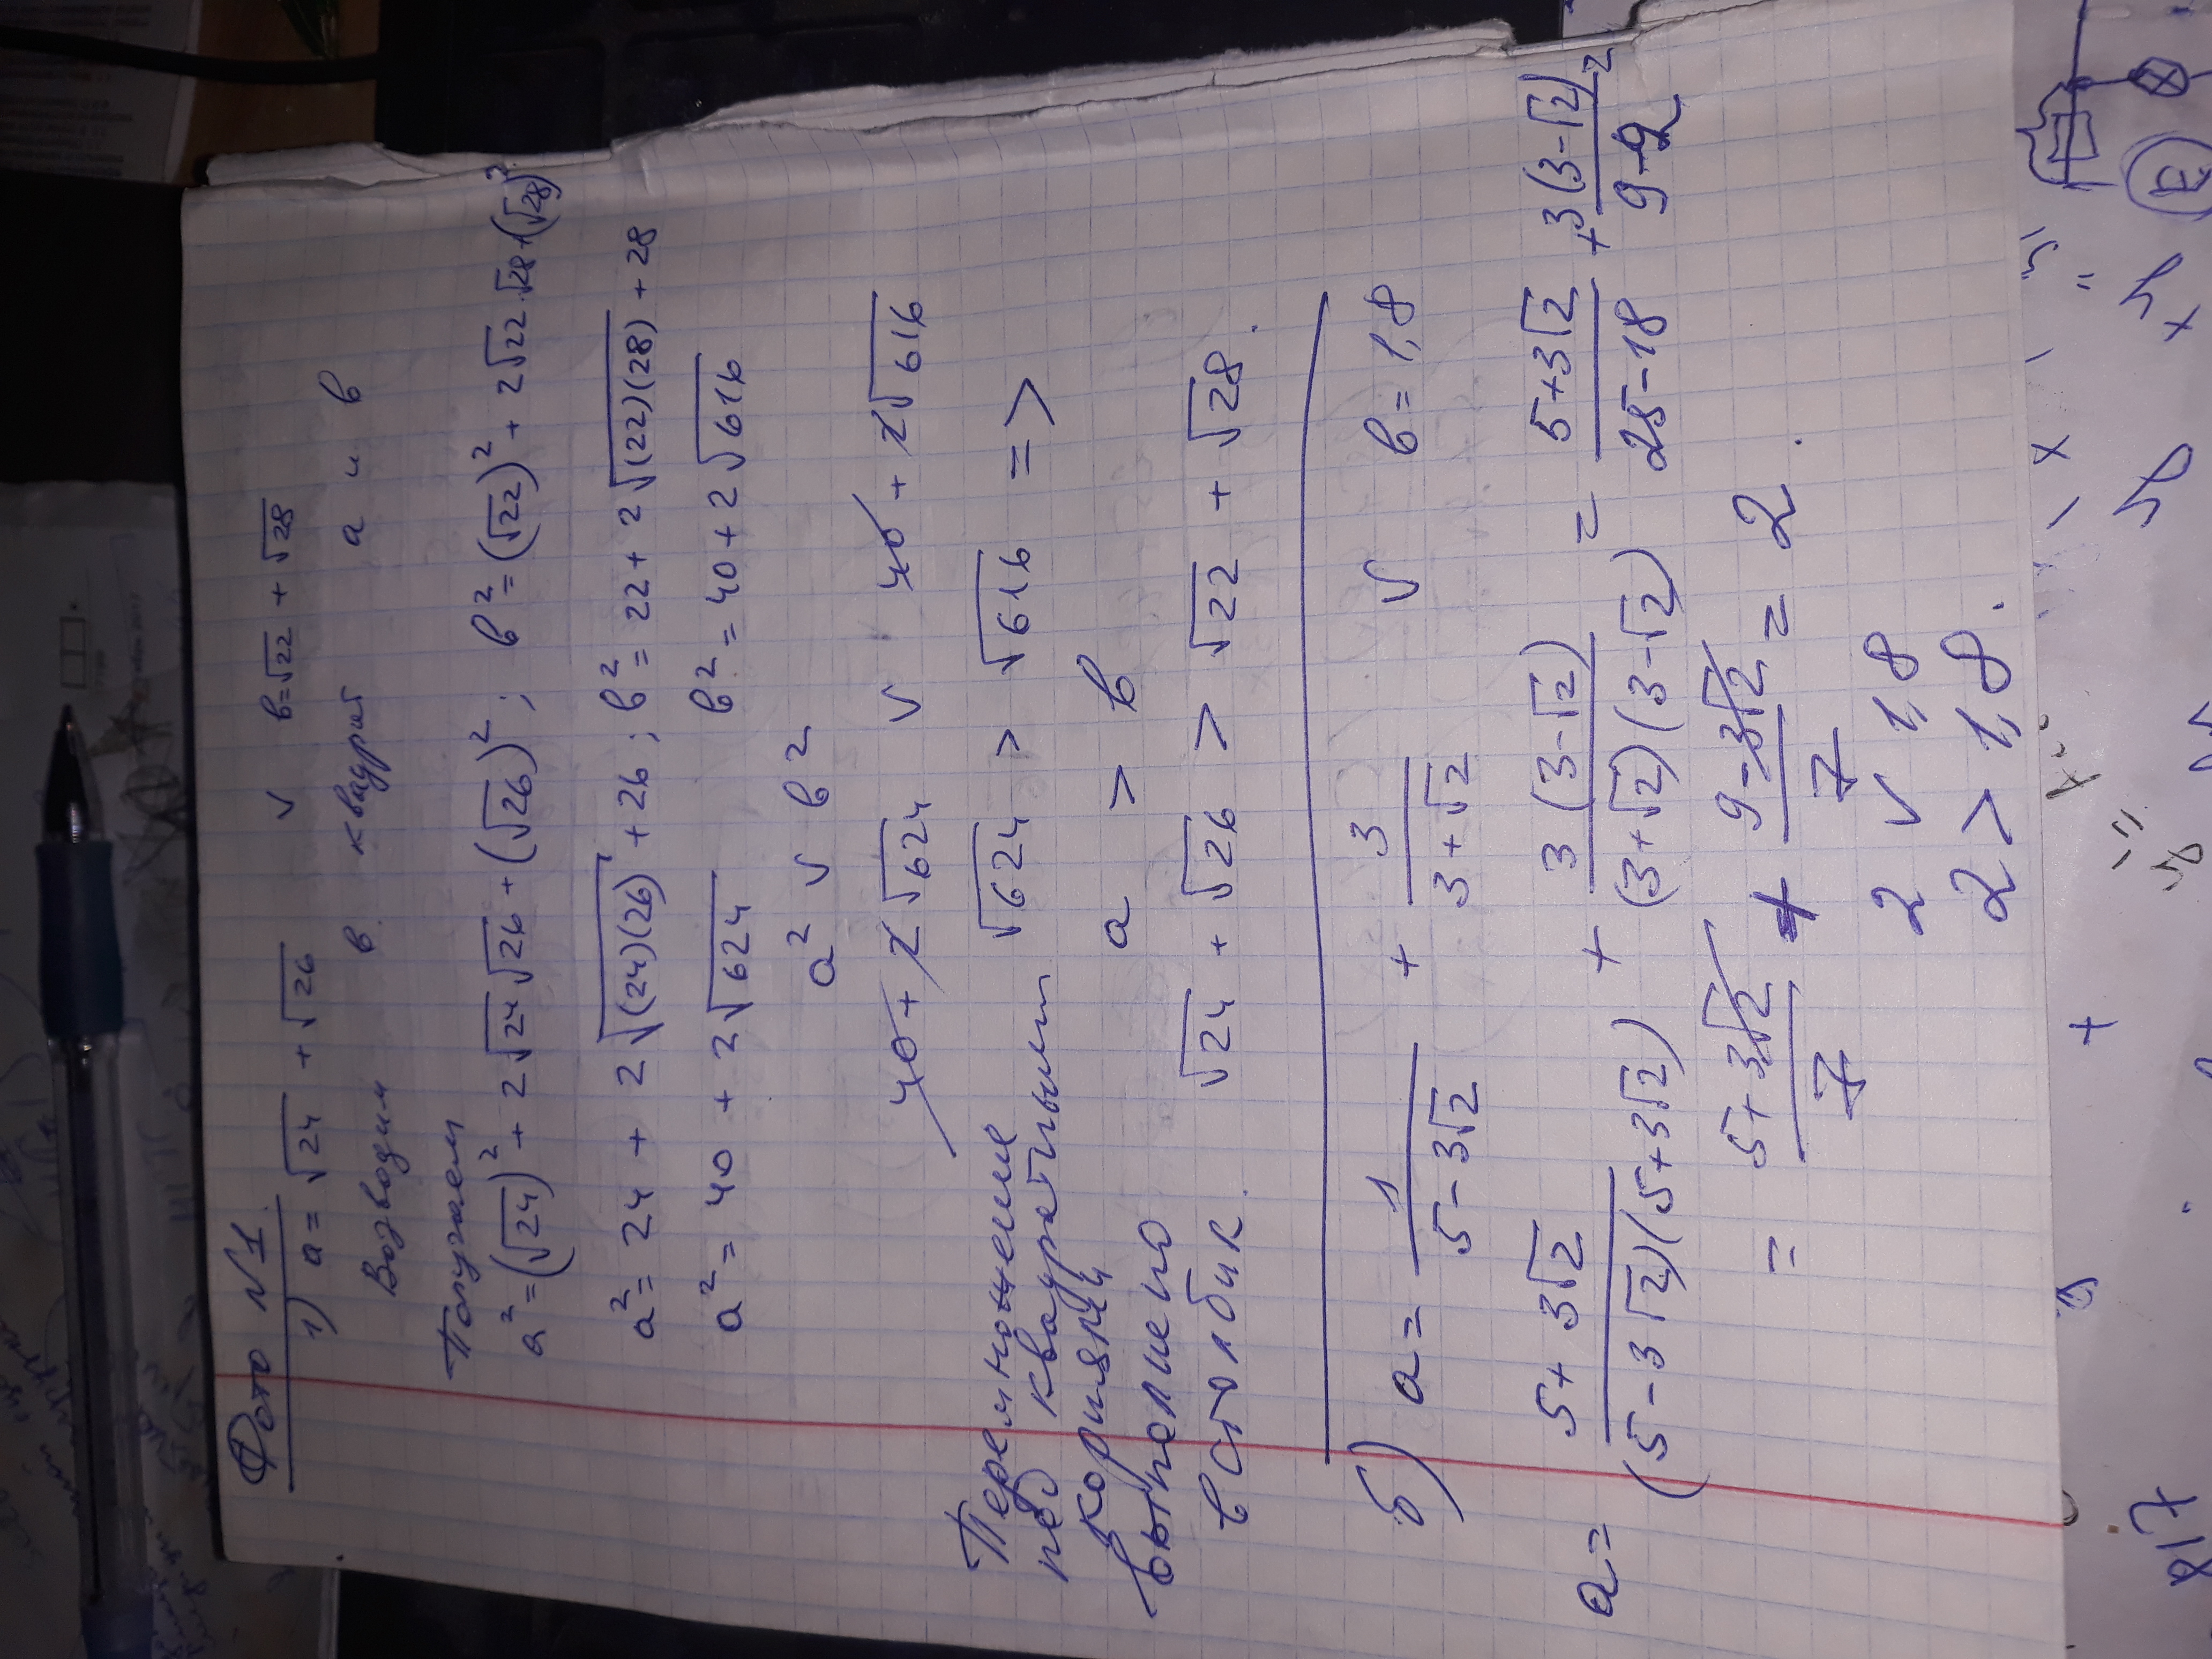 Фото №1
1) a = √24 + √26 v в = √22 + √28
Возводим в квадрат a и в
Получаем
a² = (√24)² + 2√24 √26 + (√26)² ; в² = (√22)² + 2√22 · √28 + (√28)²
a² = 24 + 2√(24)(26) + 26 ; в² = 22 + 2√(22)(28) + 28
a² = 40 + 2√624 в² = 40 + 2√616
a² v в²
40 + 2√624 v 40 + 2√616
√624 > √616 =>
Перемножение
под квадратными
корнями
выполнено
в столбик.
a > в
√24 + √26 > √22 + √28.
б) a = 1/(5 - 3√2) + 3/(3 + √2) v в = 1,8
a = (5 + 3√2)/((5 - 3√2)(5 + 3√2)) + 3(3 - √2)/((3 + √2)(3 - √2)) = (5 + 3√2)/(25 - 18) + 3(3 - √2)/(9 - 2) =
= (5 + 3√2)/7 + (9 - 3√2)/7 = 2.
2 v 1,8
2 > 1,8.